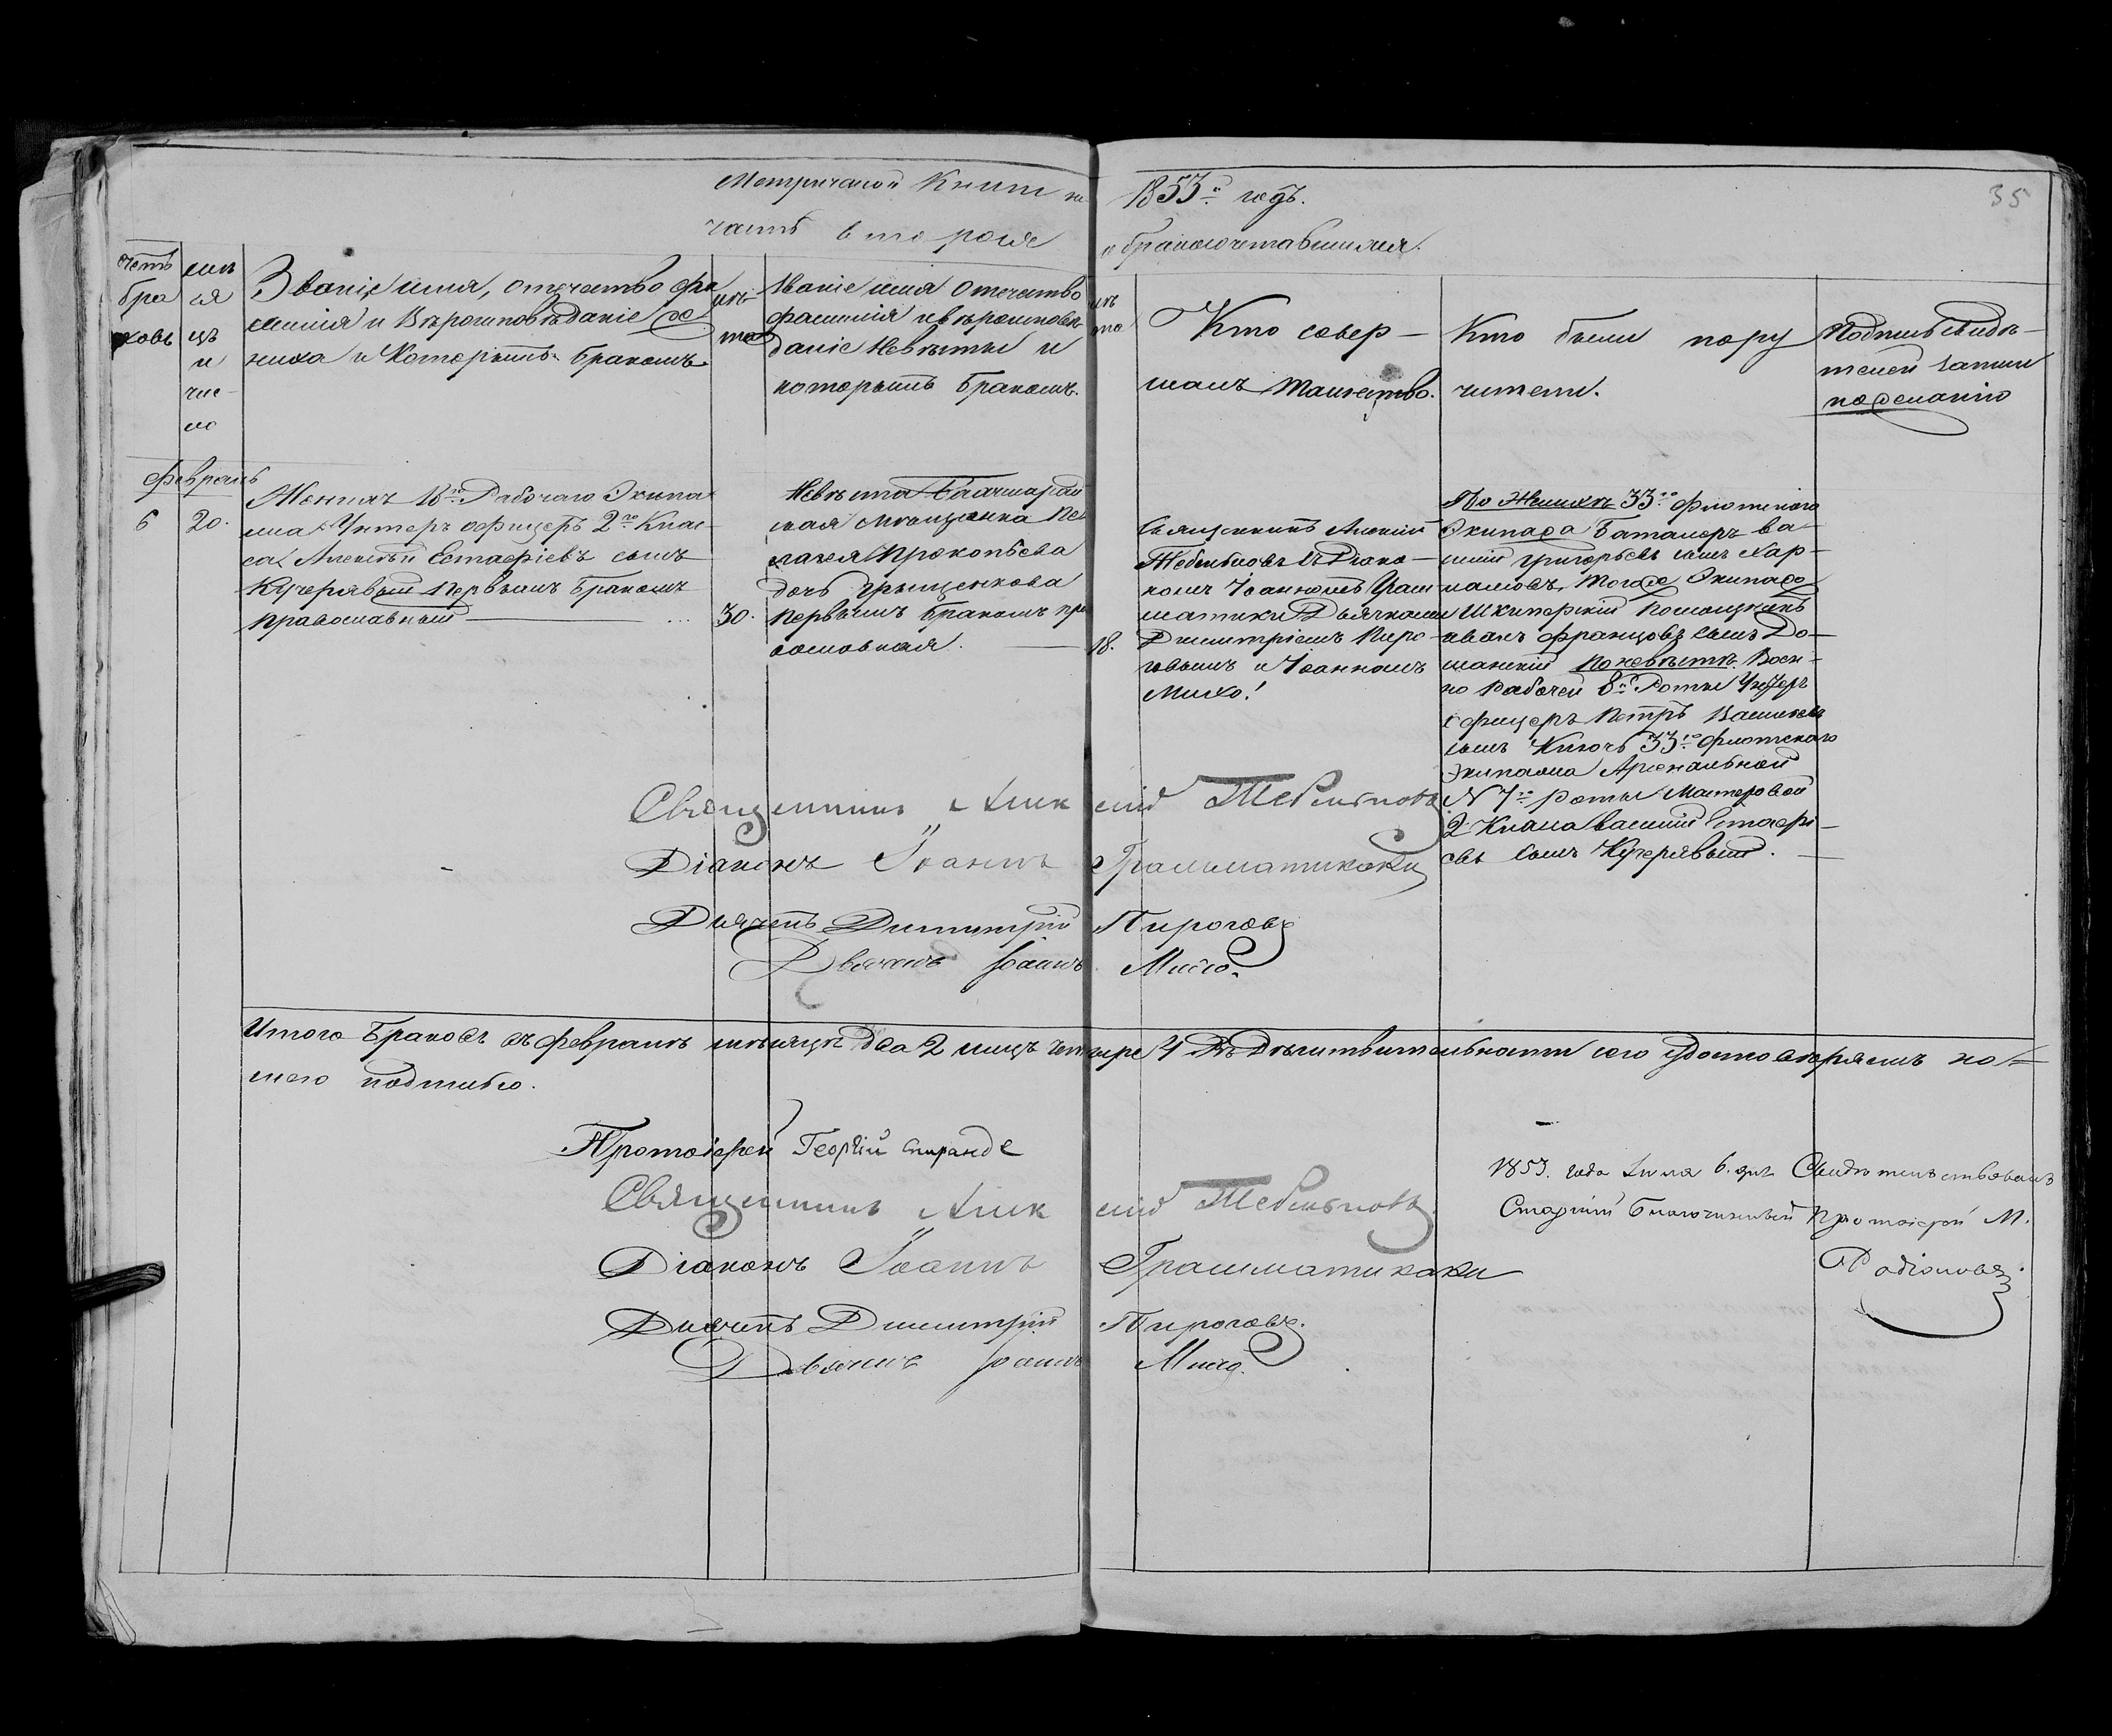 35
Метрической Книги на 1853й годъ.
часть вторая о бракосочетавшихся.
Счетъ браковъ
мѣсяцъ и число
Званіе имя, отечество фа
милія и Вѣроисповѣданіе же
ниха и Которымъ бракомъ
лѣта
Званіе имя Отечество
фамилія и вѣроисповѣ-
даніе Невѣсты и
которымъ бракомъ.
лѣта
Кто совер-
шалъ таинство.
Кто были пору
чители.
Подпись свидѣ-
телей записи
по желанію
Февраль
6 20.
Женихъ 18го Рабочаго Экипа
жа Унтеръ офицеръ 2го Клас-
са Алексѣй Естафіевъ сынъ
Кучерявый первымъ бракомъ
православный
30.
Невѣста Бахчисарай
ская мѣщанка Пе
лагея Прокопьева
дочь Грыщенкова
первымъ бракомъ пра
вославная.
18.
Священникъ Алексій
Тебеньковъ съ Діако-
номъ Іоанномъ Грам
матики Дьячками
Димитріемъ Пиро-
говымъ и Іоанномъ
Михо!
По Женихѣ 33го флотскаго
Экипажа Баталеръ Ва-
силій Григорьевъ сынъ Хар-
ламовъ, того же Экипажа
Шкиперскій помощникъ
Иванъ Францовъ сынъ До-
манскій По невѣстѣ Воен-
но рабочей 8й Роты Унтеръ
офицеръ Петръ Васильевъ
сынъ Ключъ 33го флотскаго
Экипажа Арсенальной
N 7й роты Мастеровой
2 Класа Василій Естафі-
евъ сынъ Кучерявый.
Священникъ Алексій Тебеньковъ
Діаконъ Іоаннъ Грамматикаки
Дьячекъ Димитрій Пироговъ
Дьячекъ Іоаннъ Михо.
Итого браковъ въ февралѣ мѣсяцѣ два 2 лицъ четыре 4 Въ Дѣйствительности сего удостовѣряемъ на-
шею подписью.
Протоіерей Георгій Спиранде
Священникъ Алексій Тебеньковъ
Діаконъ Іоаннъ Грамматикаки
Дьячекъ Димитрій Пироговъ.
Дьячекъ Іоаннъ Михо.
1853. года Іюля 6. дня Свидѣтельствовалъ
Старшій Благочинный Протоіерей М.
Родіоновъ.